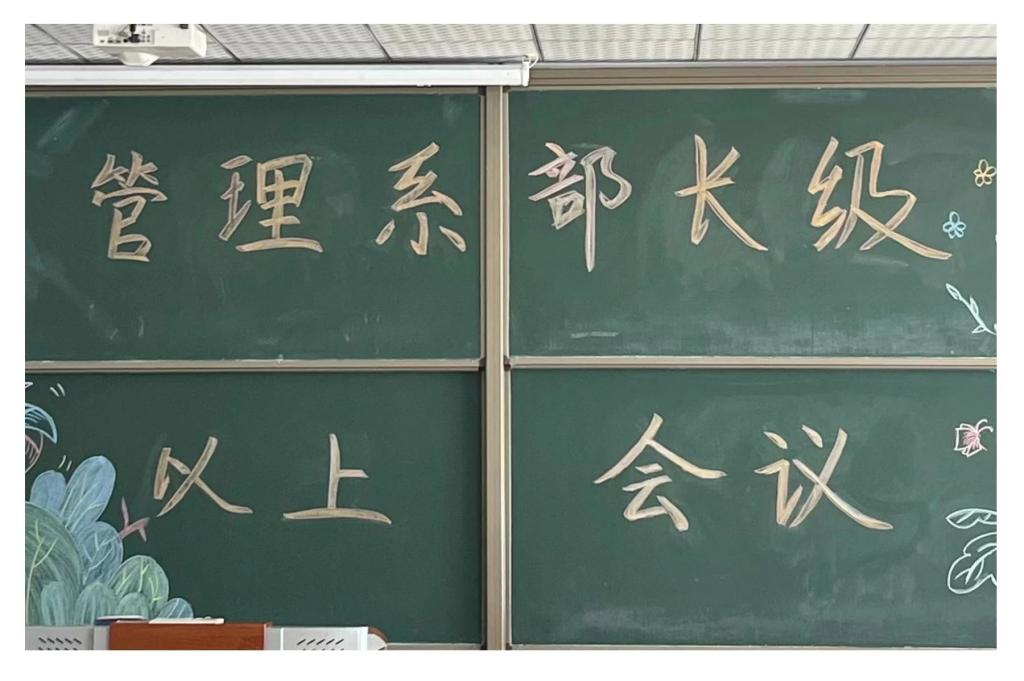 管理系部长级
以上会议